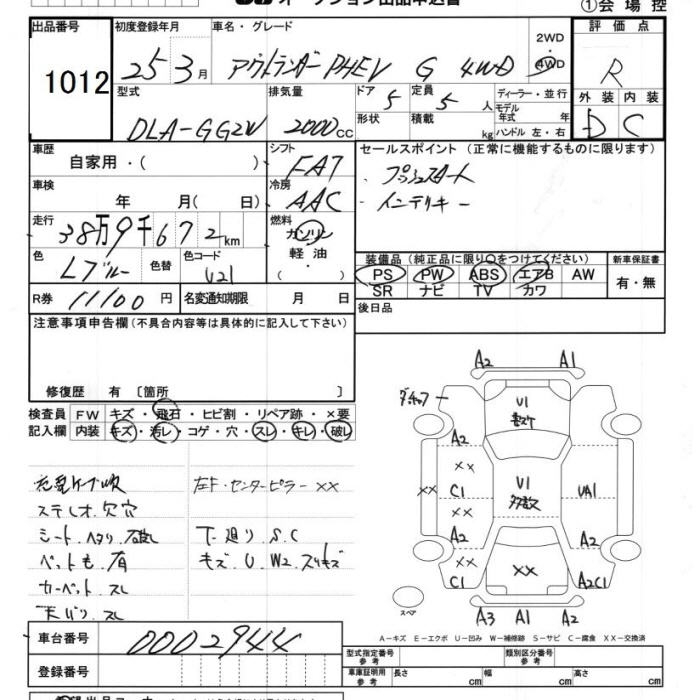 オークション出品申込書
①会場控
出品番号 初度登録年月 車名・グレード 評価点
1012 25 3月 アウトランダーPHEV G 4WD 2WD 4WD R
型式 排気量 ドア 定員 ディーラー・並行 外装 内装
DLA-GG2W 2000CC 5 5人 モデル年式 年 D C
形状 積載 kg ハンドル 左・右
車歴 シフト セールスポイント(正常に機能するものに限ります)
自家用・( ) FAT ・プッシュスタート
車検 冷房 ・インテリキー
年 月( 日) AAC
走行 燃料
38万9千672km ガソリン
軽油
・( )
色 色替 色コード
Lブルー U21
装備品(純正品に限り○をつけてください) 新車保証書
PS PW ABS エアB AW 有・無
SR ナビ TV カワ
R券 11100円 名変通知期限 月 日
後日品
注意事項申告欄(不具合内容等は具体的に記入して下さい)
修復歴 有 〔箇所 〕
検査員 FW キズ・飛石・ヒビ割・リペア跡・×要
記入欄 内装 キズ・汚レ・コゲ・穴・スレ・キレ・破レ
充電ケーブル欠
左F・センターピラー ××
ステレオ欠穴
シート・ヘタリ・破レ
下廻り S.C
ペット毛 有
キズ U W2 スリキズ
カーペット スレ
天バリ スレ
A2 A1
U1
A2
××
C1
××
××
U1
UA1
A2
A2
××
C1
××
A2C1
スペア
A3 A1 A2
A-キズ E-エクボ U-凹み W-補修跡 S-サビ C-腐食 XX-交換済
車台番号 0002944
型式指定番号 参考 類別区分番号 参考
登録番号
車庫証明用 参考 長さ cm 幅 cm 高さ cm